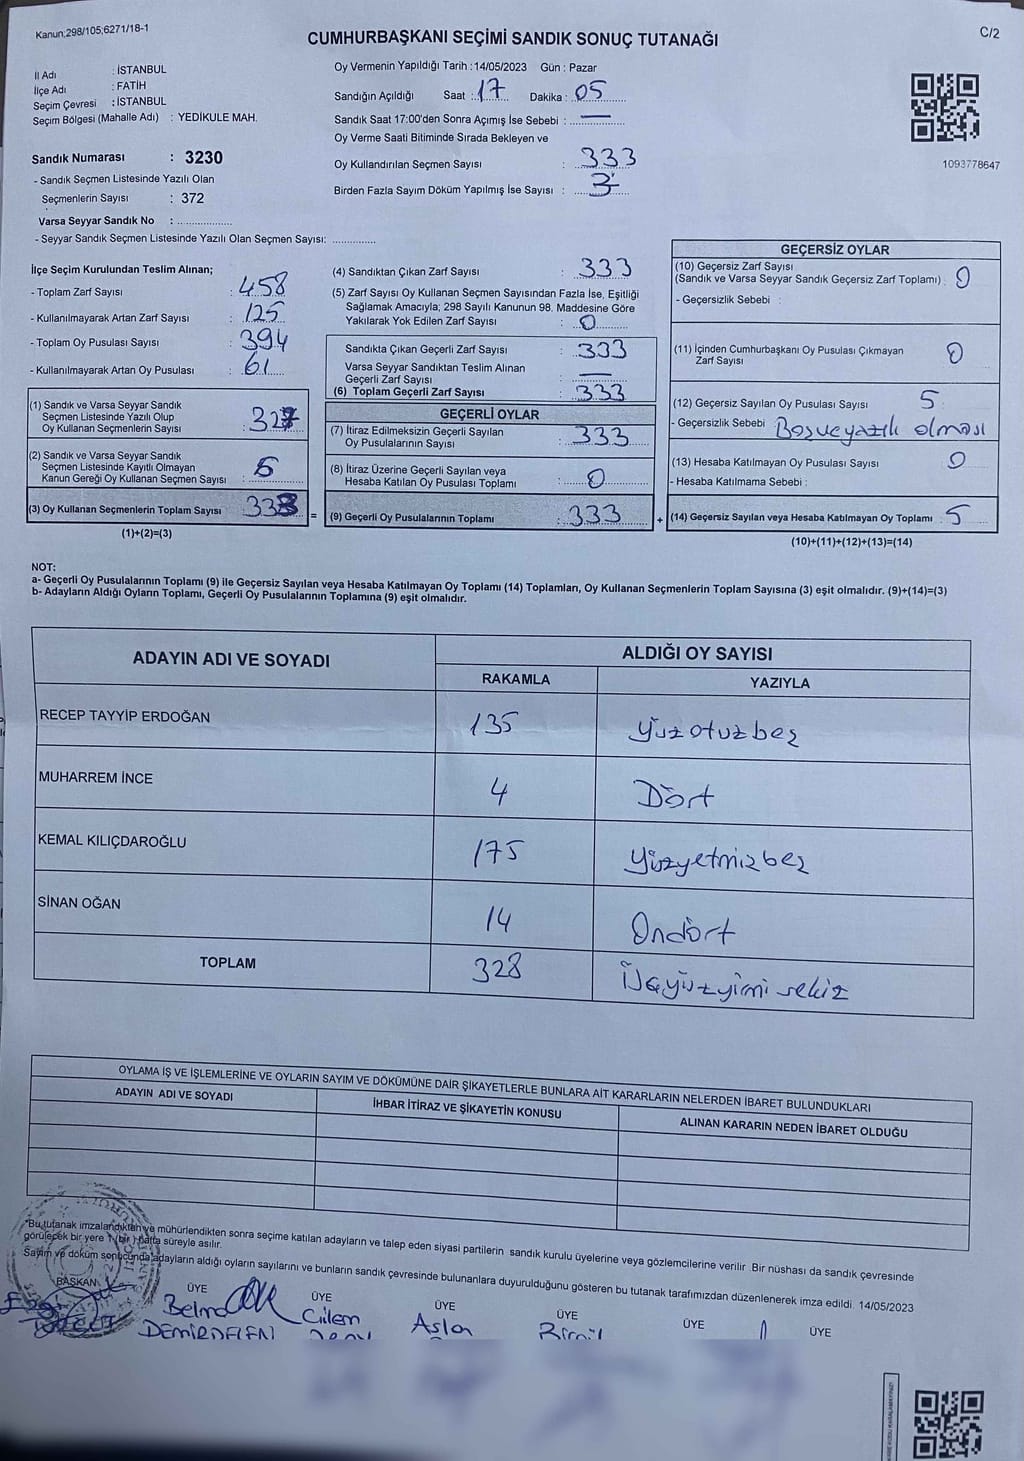 Kanun;298/105;6271/18-1
C/2
CUMHURBAŞKANI SEÇİMİ SANDIK SONUÇ TUTANAĞI
İl Adı : İSTANBUL
İlçe Adı : FATİH
Seçim Çevresi : İSTANBUL
Seçim Bölgesi (Mahalle Adı) : YEDİKULE MAH.
Sandık Numarası : 3230
- Sandık Seçmen Listesinde Yazılı Olan
Seçmenlerin Sayısı : 372
Varsa Seyyar Sandık No : ....................
- Seyyar Sandık Seçmen Listesinde Yazılı Olan Seçmen Sayısı: ..............
Oy Vermenin Yapıldığı Tarih :14/05/2023 Gün : Pazar
Sandığın Açıldığı Saat : 17 Dakika : 05
Sandık Saat 17:00'den Sonra Açımış İse Sebebi : —
Oy Verme Saati Bitiminde Sırada Bekleyen ve
Oy Kullandırılan Seçmen Sayısı : 333
Birden Fazla Sayım Döküm Yapılmış İse Sayısı : 3
1093778647
İlçe Seçim Kurulundan Teslim Alınan;
- Toplam Zarf Sayısı : 458
- Kullanılmayarak Artan Zarf Sayısı : 125
- Toplam Oy Pusulası Sayısı : 394
- Kullanılmayarak Artan Oy Pusulası : 61
(1) Sandık ve Varsa Seyyar Sandık
Seçmen Listesinde Yazılı Olup
Oy Kullanan Seçmenlerin Sayısı :
(2) Sandık ve Varsa Seyyar Sandık
Seçmen Listesinde Kayıtlı Olmayan
Kanun Gereği Oy Kullanan Seçmen Sayısı :
(3) Oy Kullanan Seçmenlerin Toplam Sayısı
(1)+(2)=(3)
(4) Sandıktan Çıkan Zarf Sayısı : 333
(5) Zarf Sayısı Oy Kullanan Seçmen Sayısından Fazla İse, Eşitliği
Sağlamak Amacıyla; 298 Sayılı Kanunun 98. Maddesine Göre
Yakılarak Yok Edilen Zarf Sayısı : 0
Sandıkta Çıkan Geçerli Zarf Sayısı : 333
Varsa Seyyar Sandıktan Teslim Alınan
Geçerli Zarf Sayısı : —
(6) Toplam Geçerli Zarf Sayısı : 333
GEÇERLİ OYLAR
(7) İtiraz Edilmeksizin Geçerli Sayılan
Oy Pusulalarının Sayısı : 333
(8) İtiraz Üzerine Geçerli Sayılan veya
Hesaba Katılan Oy Pusulası Toplamı : 0
= (9) Geçerli Oy Pusulalarının Toplamı : 333 +
GEÇERSİZ OYLAR
(10) Geçersiz Zarf Sayısı
(Sandık ve Varsa Seyyar Sandık Geçersiz Zarf Toplamı) : 0
- Geçersizlik Sebebi :
(11) İçinden Cumhurbaşkanı Oy Pusulası Çıkmayan
Zarf Sayısı 0
(12) Geçersiz Sayılan Oy Pusulası Sayısı 5
- Geçersizlik Sebebi Boşveyazılı olması
(13) Hesaba Katılmayan Oy Pusulası Sayısı 0
- Hesaba Katılmama Sebebi :
(14) Geçersiz Sayılan veya Hesaba Katılmayan Oy Toplamı : 5
(10)+(11)+(12)+(13)=(14)
NOT:
a- Geçerli Oy Pusulalarının Toplamı (9) ile Geçersiz Sayılan veya Hesaba Katılmayan Oy Toplamı (14) Toplamları, Oy Kullanan Seçmenlerin Toplam Sayısına (3) eşit olmalıdır. (9)+(14)=(3)
b- Adayların Aldığı Oyların Toplamı, Geçerli Oy Pusulalarının Toplamına (9) eşit olmalıdır.
ADAYIN ADI VE SOYADI
ALDIĞI OY SAYISI
RAKAMLA YAZIYLA
RECEP TAYYİP ERDOĞAN 135 Yüzotuzbeş
MUHARREM İNCE 4 Dört
KEMAL KILIÇDAROĞLU 175 Yüzyetmizbeş
SİNAN OĞAN 14 Ondört
TOPLAM 328 Üçyüzyirmi sekiz
OYLAMA İŞ VE İŞLEMLERİNE VE OYLARIN SAYIM VE DÖKÜMÜNE DAİR ŞİKAYETLERLE BUNLARA AİT KARARLARIN NELERDEN İBARET BULUNDUKLARI
ADAYIN ADI VE SOYADI İHBAR İTİRAZ VE ŞİKAYETİN KONUSU ALINAN KARARIN NEDEN İBARET OLDUĞU
*Bu tutanak imzalandıktan ve mühürlendikten sonra seçime katılan adayların ve talep eden siyasi partilerin sandık kurulu üyelerine veya gözlemcilerine verilir. Bir nüshası da sandık çevresinde
görülecek bir yere 1 (bir) hafta süreyle asılır.
Sayım ve döküm sonucunda adayların aldığı oyların sayılarını ve bunların sandık çevresinde bulunanlara duyurulduğunu gösteren bu tutanak tarafımızdan düzenlenerek imza edildi. 14/05/2023
BAŞKAN ÜYE ÜYE ÜYE ÜYE ÜYE ÜYE
Belma Gülem Aslan
DEMİRDELEN